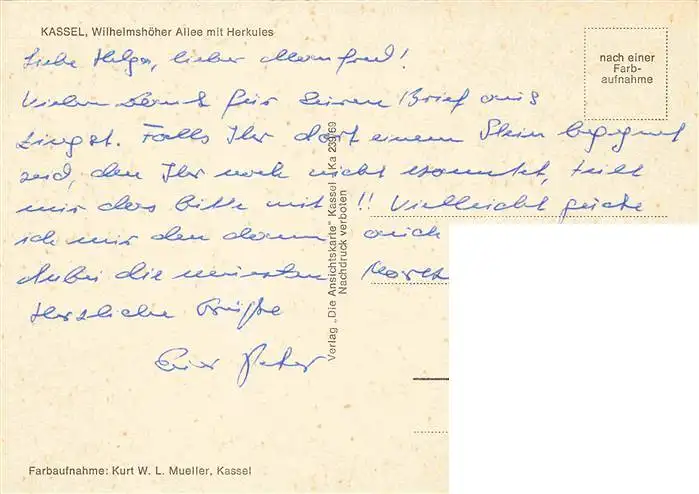 KASSEL, Wilhelmshöher Allee mit Herkules
nach einer
Farb-
aufnahme
Liebe Helga, lieber Manfred!
Vielen Dank für Deinen Brief aus
Zingst. Falls Ihr dort einem Stein begegnet
seid, den Ihr noch nicht kanntet, teilt
mir das bitte mit!! Vielleicht
ich mir den dann auch
Anbei die neuesten
Herzliche Grüße
Euer Peter
Verlag „Die Ansichtskarte" Kassel Ka 239/69
Nachdruck verboten
Farbaufnahme: Kurt W. L. Mueller, Kassel